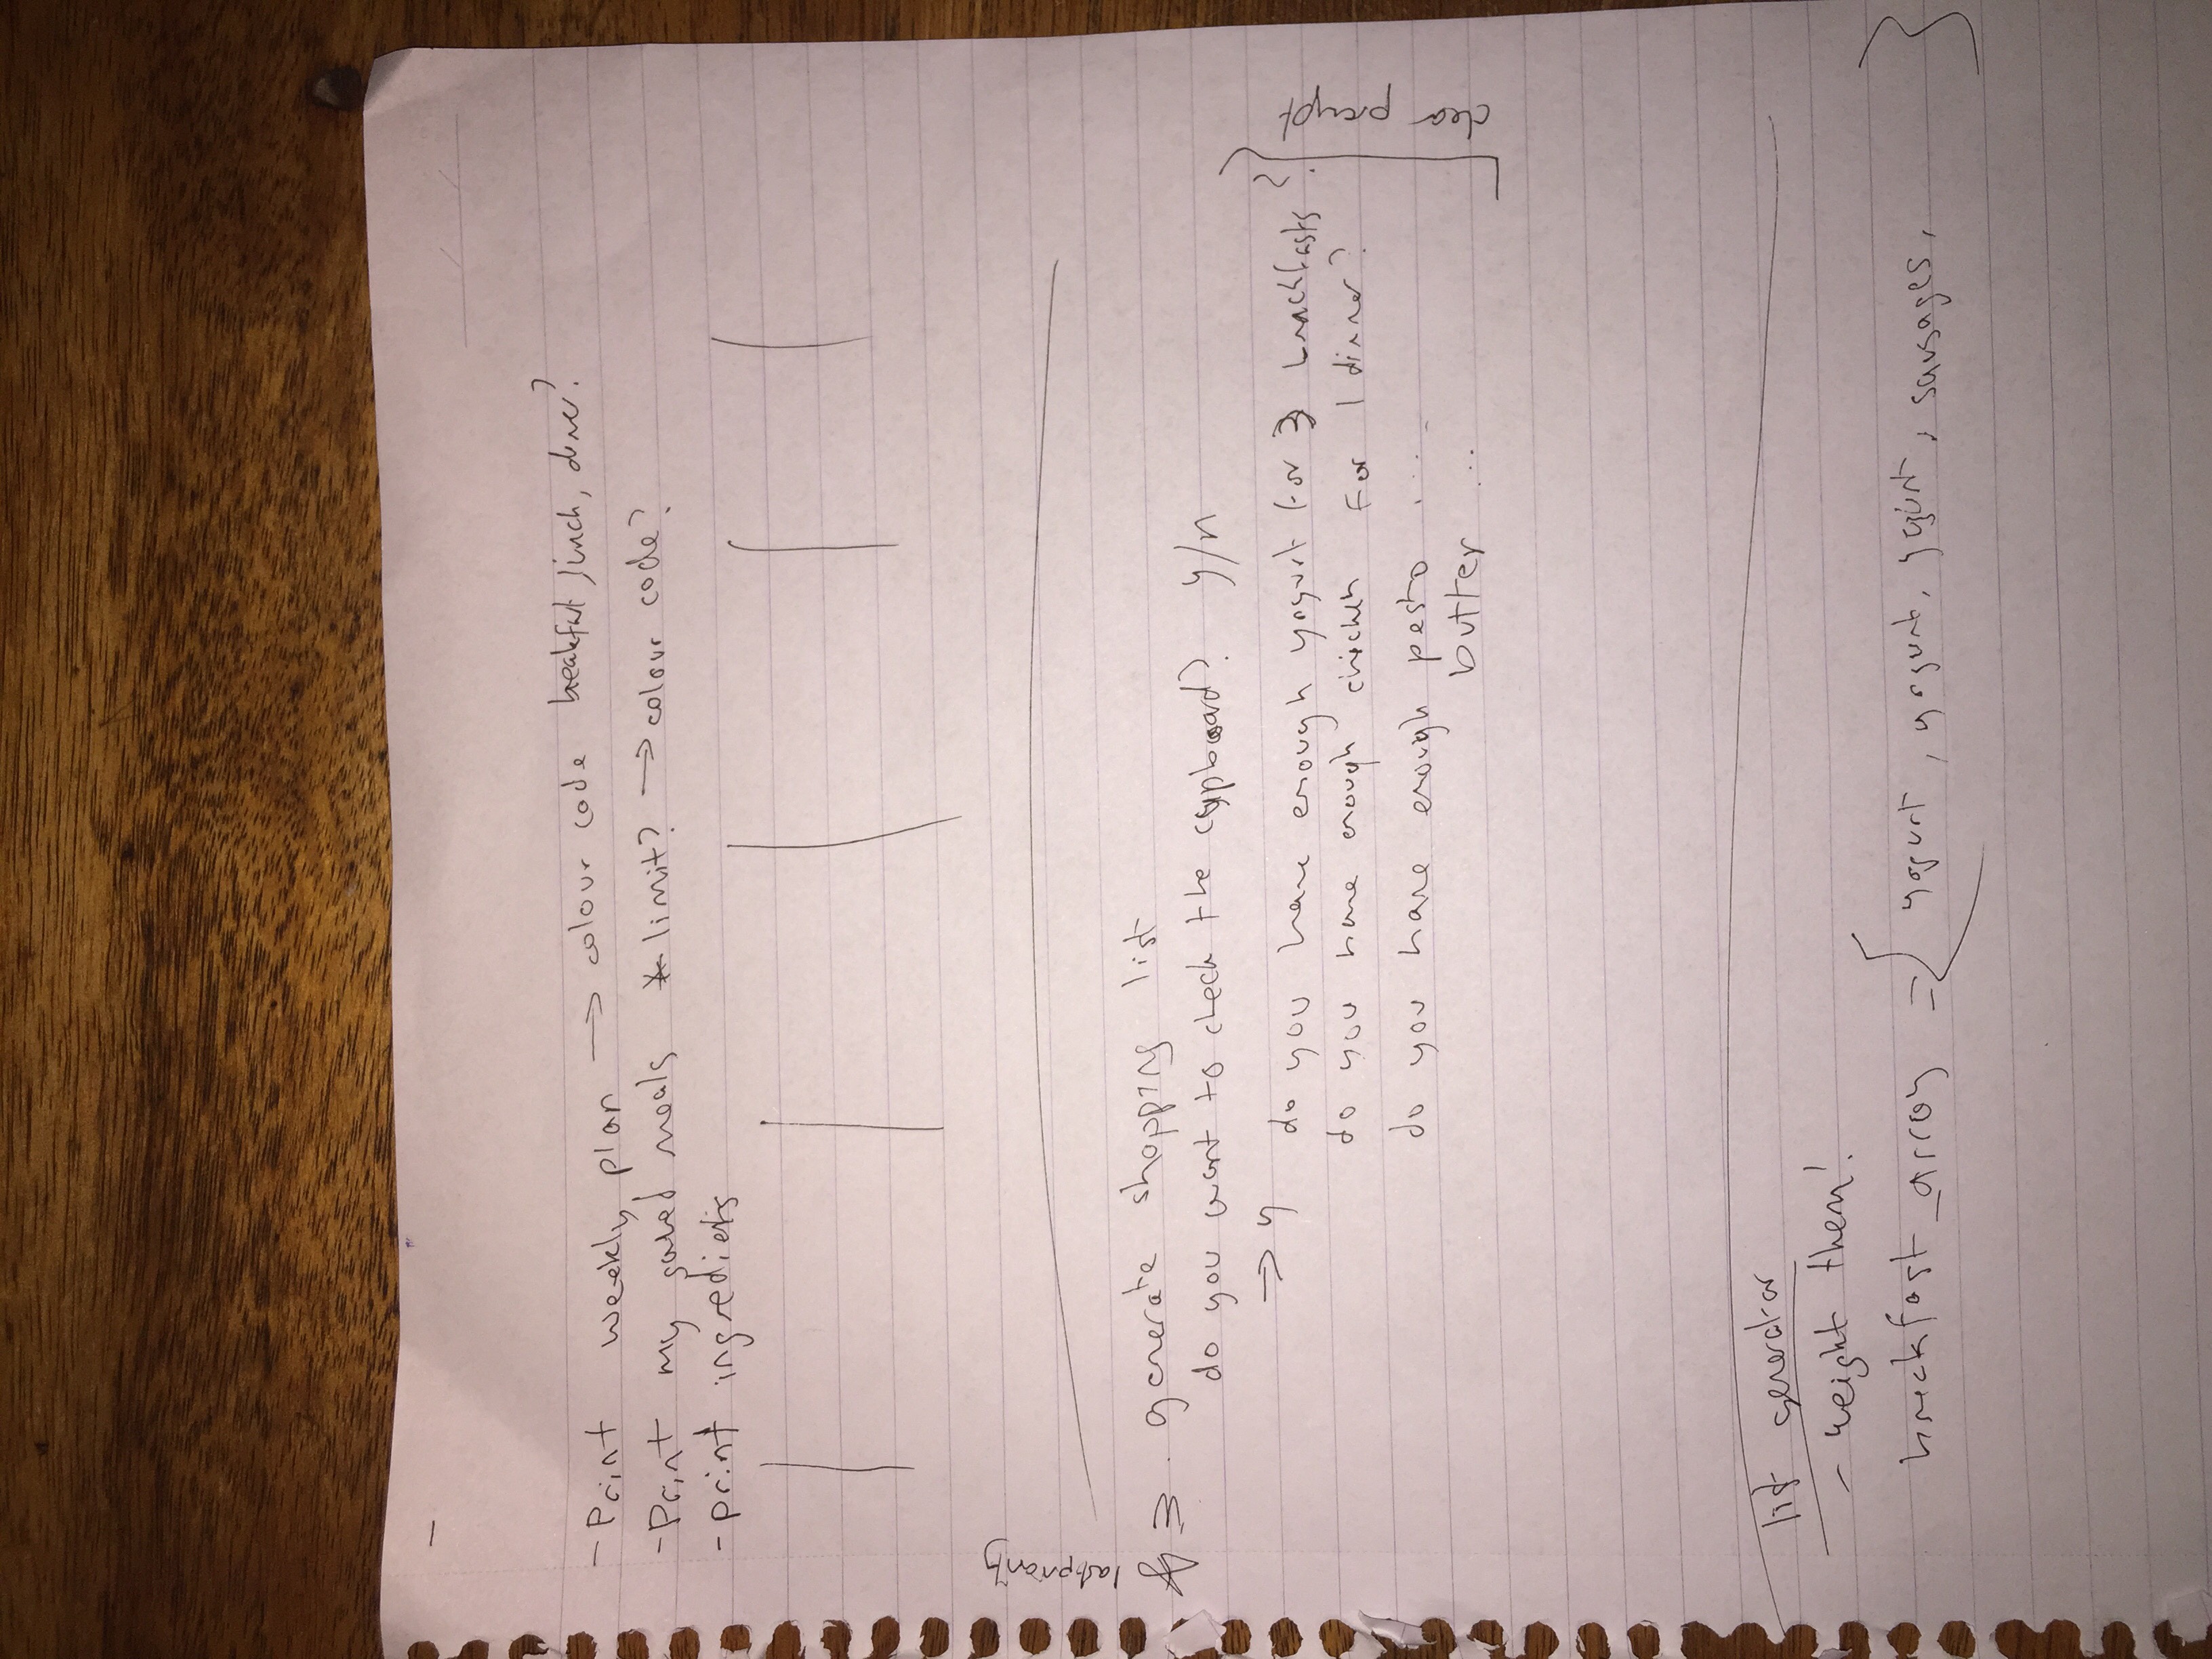 - Print weekly plan → colour code breakfast, lunch, dinner?
- Print my saved meals * limit? → colour code?
- print ingredients
last priority
generate shopping list
do you want to check the cupboard? y/n
→ y do you have enough yogurt for 3 breakfasts?
do you have enough chicken for 1 dinner?
do you have enough pesto ....
butter ...
clear prompt
list generator
- weight them!
breakfast_array = { yogurt, yogurt, yogurt, sausages, }